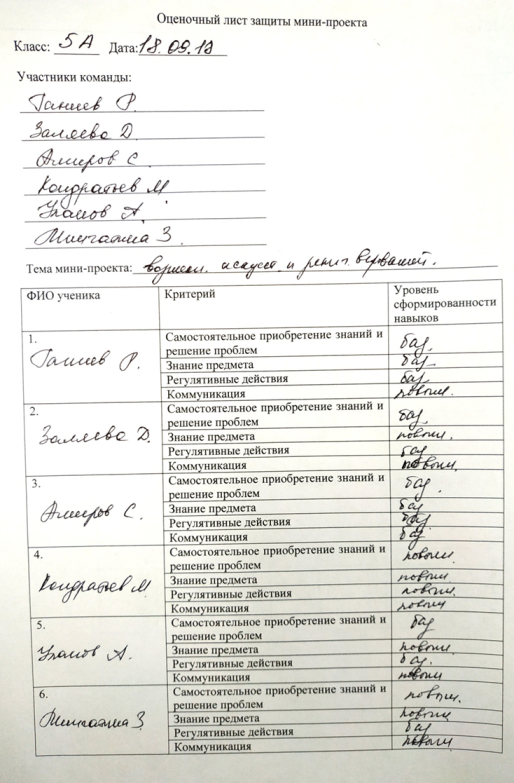 Оценочный лист защиты мини-проекта
Класс: 5А Дата: 18.09.19
Участники команды:
Ганиев Р.
Заляева Д.
Амиров С.
Кондратьев М
А.
З.
Тема мини-проекта: возникн. искусст. и религ. верований.
ФИО ученика Критерий Уровень сформированности навыков
1. Ганиев Р.
Самостоятельное приобретение знаний и решение проблем баз.
Знание предмета баз.
Регулятивные действия баз.
Коммуникация повыш.
2. Заляева Д.
Самостоятельное приобретение знаний и решение проблем баз.
Знание предмета повыш.
Регулятивные действия баз
Коммуникация повыш.
3. Амиров С.
Самостоятельное приобретение знаний и решение проблем баз.
Знание предмета баз
Регулятивные действия баз
Коммуникация баз
4. Кондратьев М.
Самостоятельное приобретение знаний и решение проблем повыш
Знание предмета повыш
Регулятивные действия повыш
Коммуникация повыш
5. А.
Самостоятельное приобретение знаний и решение проблем баз
Знание предмета повыш.
Регулятивные действия баз.
Коммуникация повыш
6. З.
Самостоятельное приобретение знаний и решение проблем повыш.
Знание предмета повыш
Регулятивные действия баз
Коммуникация повыш